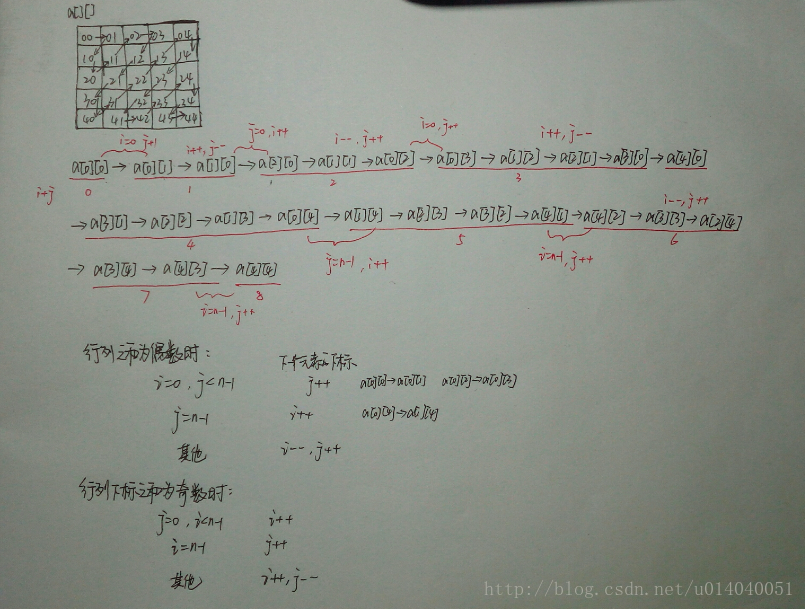 a[][]
00 01 02 03 04
10 11 12 13 14
20 21 22 23 24
30 31 32 33 34
40 41 42 43 44
i=0 j+1 i++, j-- j=0, i++ i--, j++ i=0, j++ i++, j--
a[0][0] → a[0][1] → a[1][0] → a[2][0] → a[1][1] → a[0][2] → a[0][3] → a[1][2] → a[2][1] → a[3][0] → a[4][0]
i+j 0 1 1 2 3
i--, j++
→ a[3][1] → a[2][2] → a[1][3] → a[0][4] → a[1][4] → a[2][3] → a[3][2] → a[4][1] → a[4][2] → a[3][3] → a[2][4]
4 5 6
j=n-1, i++ i=n-1, j++
→ a[3][4] → a[4][3] → a[4][4]
7 8
i=n-1, j++
行列之和为偶数时: 下个元素下标
i=0, j<n-1 j++ a[0][0]→a[0][1] a[0][2]→a[0][3]
j=n-1 i++ a[0][4]→a[1][4]
其他 i--, j++
行列下标之和为奇数时:
j=0, i<n-1 i++
i=n-1 j++
其他 i++, j--
http://blog.csdn.net/u014040051